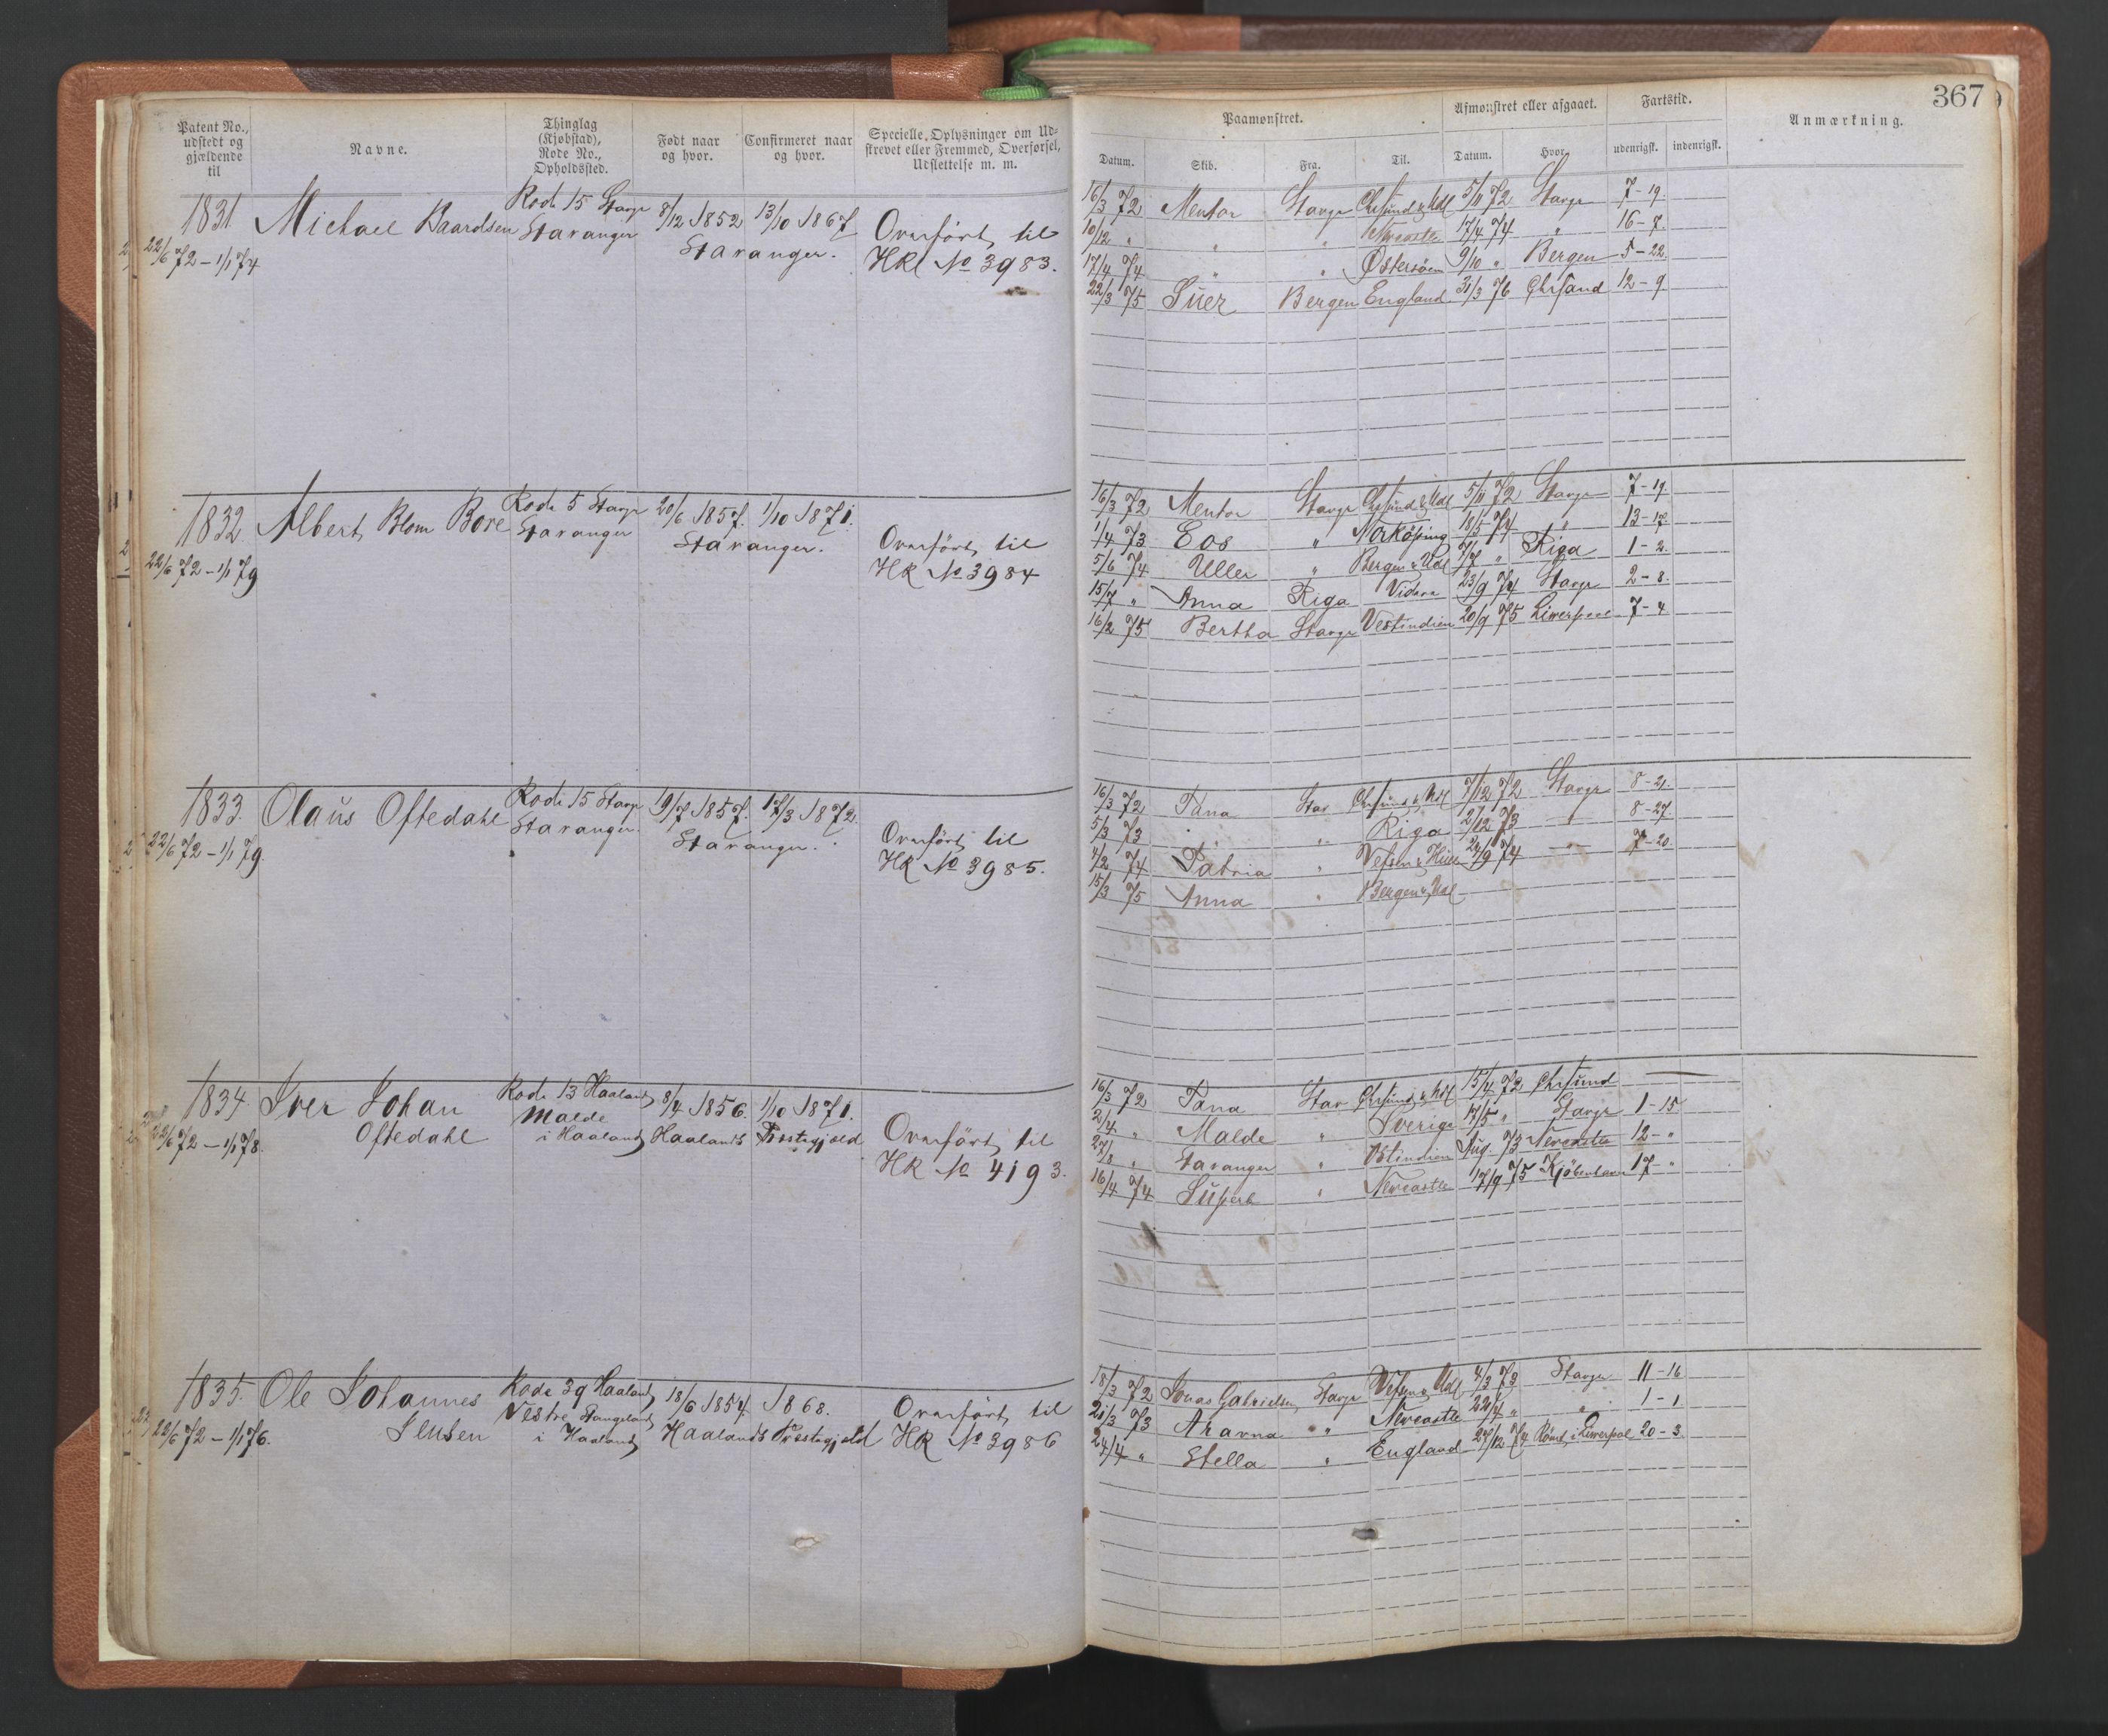 367
Patent No., udstedt og gjældende til
Navne.
Thinglag (Kjøbstad), Rode No., Opholdssted.
Født naar og hvor.
Confirmeret naar og hvor.
Specielle Oplysninger om Udstrevet eller Fremmed, Overførsel, Udslettelse m. m.
Paamønstret.
Afmønstret eller afgaaet.
Fartstid.
Anmærkning.
Datum. Skib. Fra. Til. Datum. Hvor. udenrigsk. indenrigsk.
1831. Michael Baardsen Rode 15 Stavgr 8/12 1852 13/10 1867
22/6 72 - 1/1 74 Stavanger Stavanger. Overført til
HR No 3983.
16/3 72 Mentor Stavgr Chrsund & Udl 5/11 72 Stavgr 7-19.
10/12 " " " Newcastle 17/4 74 " 16-7
17/4 74 " " Østersøen 9/10 " Bergen 5-22
22/3 75 Suez Bergen England 31/3 76 Chrsand 12-9
1832. Albert Blom Bore Rode 5 Stavgr 20/6 1857. 1/10 1871.
22/6 72 - 1/1 79 Stavanger Stavanger. Overført til
HR No 3984
16/3 72 Mentor Stavgr Chrsund & Udl 5/11 72 Stavgr 7-19.
1/4 73 Eos " Norköping 18/5 74 " 13-17.
5/6 74 Uller " Bergen & Udl 7/7 " Riga 1-2.
15/7 " Anna Riga Vidare 23/9 74 Stavgr 2-8.
16/2 75 Bertha Stavgr Vestindien 20/9 75 Liverpool 7-4
1833. Olaus Oftedahl Rode 15 Stavgr 19/7 1857. 17/3 1872.
22/6 72 - 1/1 79. Stavanger. Stavanger. Overført til
HR No 3985.
16/3 72 Pana Stav Chrsund & Udl 7/12 72 Stavgr 8-21.
5/3 73 " " Riga 2/12 73 " 8-27.
4/2 74 Patria " Vefsen & 24/9 74 " 7-20
15/3 75 Anna " Bergen & Udl
1834. Iver Johan Rode 13 Haaland 8/4 1856. 1/10 1871.
22/6 72 - 1/1 78. Oftedahl Malde i Haaland Haalands Præstegjæld Overført til
HR No 4193.
16/3 72 Pana Stav Chrsund & Udl 15/4 72 Chrsund —
2/4 " Malde " Sverige 17/5 " Stavgr 1-15
27/8 " Stavanger " Ostindien Aug. 73 Newcastle 12-"
16/4 74 Superb " Newcastle 17/9 75 Kjøbenhavn 17-"
1835. Ole Johannes Rode 39 Haaland 18/6 1854. 1868.
22/6 72 - 1/1 76. Jensen Vestre Stangeland i Haaland Haalands Præstegjæld Overført til
HR No 3986
18/3 72 Jonas Gabrielsen Stavgr Vefsen & Udl 4/3 73 Stavgr 11-16
21/3 73 Aravna " Newcastle 22/4 " " 1-1
24/4 " Stella " England 27/12 74 Rømt i Liverpool 20-3